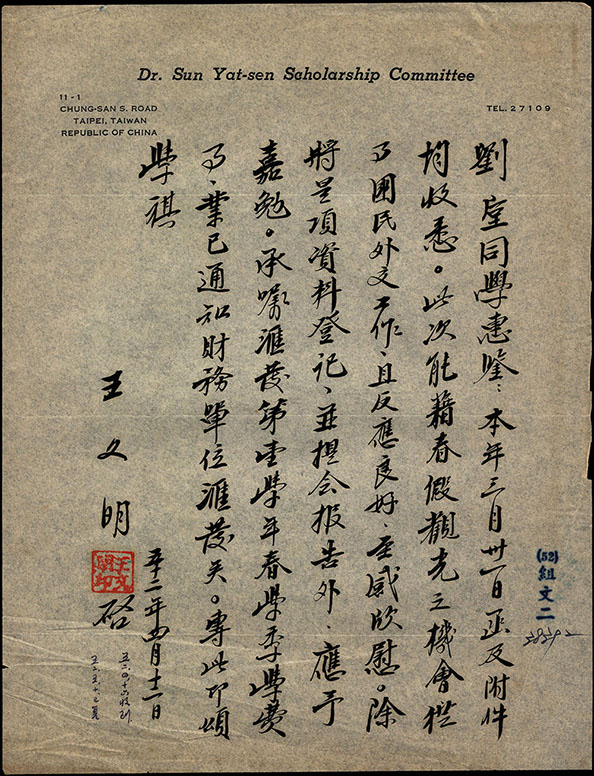 Dr. Sun Yat-sen Scholarship Committee
11-1
CHUNG-SAN S. ROAD
TAIPEI, TAIWAN
REPUBLIC OF CHINA
TEL. 27109
劉 同學惠鑒：本年三月卅一日函及附件
均收悉。此次能藉春假觀光之機會從
事國民外交工作、且反應良好、至感欣慰。除
將是項資料登記、並提会报告外、應予
嘉勉。承囑滙發第壹學年春學季學費
事、業已通知財務單位滙發矣。專此即頌
學祺
王文明
啓
王文明印
五十二年四月十二日
(52)
組文二